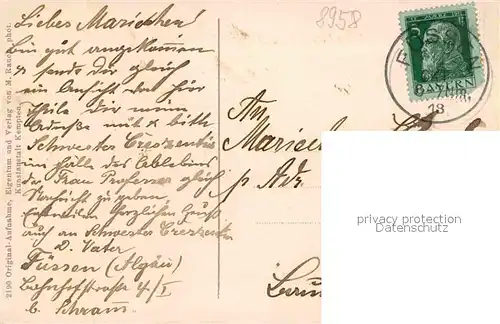 8958
Liebes Mariechen!
bin gut angekommen
& sende Dir gleich
eine Ansicht von hier
theile Dir meine
Adresse mit & bitte
Schwester Creszentia
im Falle des Ablebens
der Frau Professor gleich
Nachricht zu geben,
Herzlichen Gruß
auch an Schwester Creszentia
D. Vater
Füssen (Algäu)
Bahnhofstraße 4/I
b. Schramm.
2190 Original-Aufnahme, Eigentum und Verlag von M. Rauch, phot.
Kunstanstalt Kempten.
5
BAYERN
18
An
p. Adr.
privacy protection
www.oldthing.de